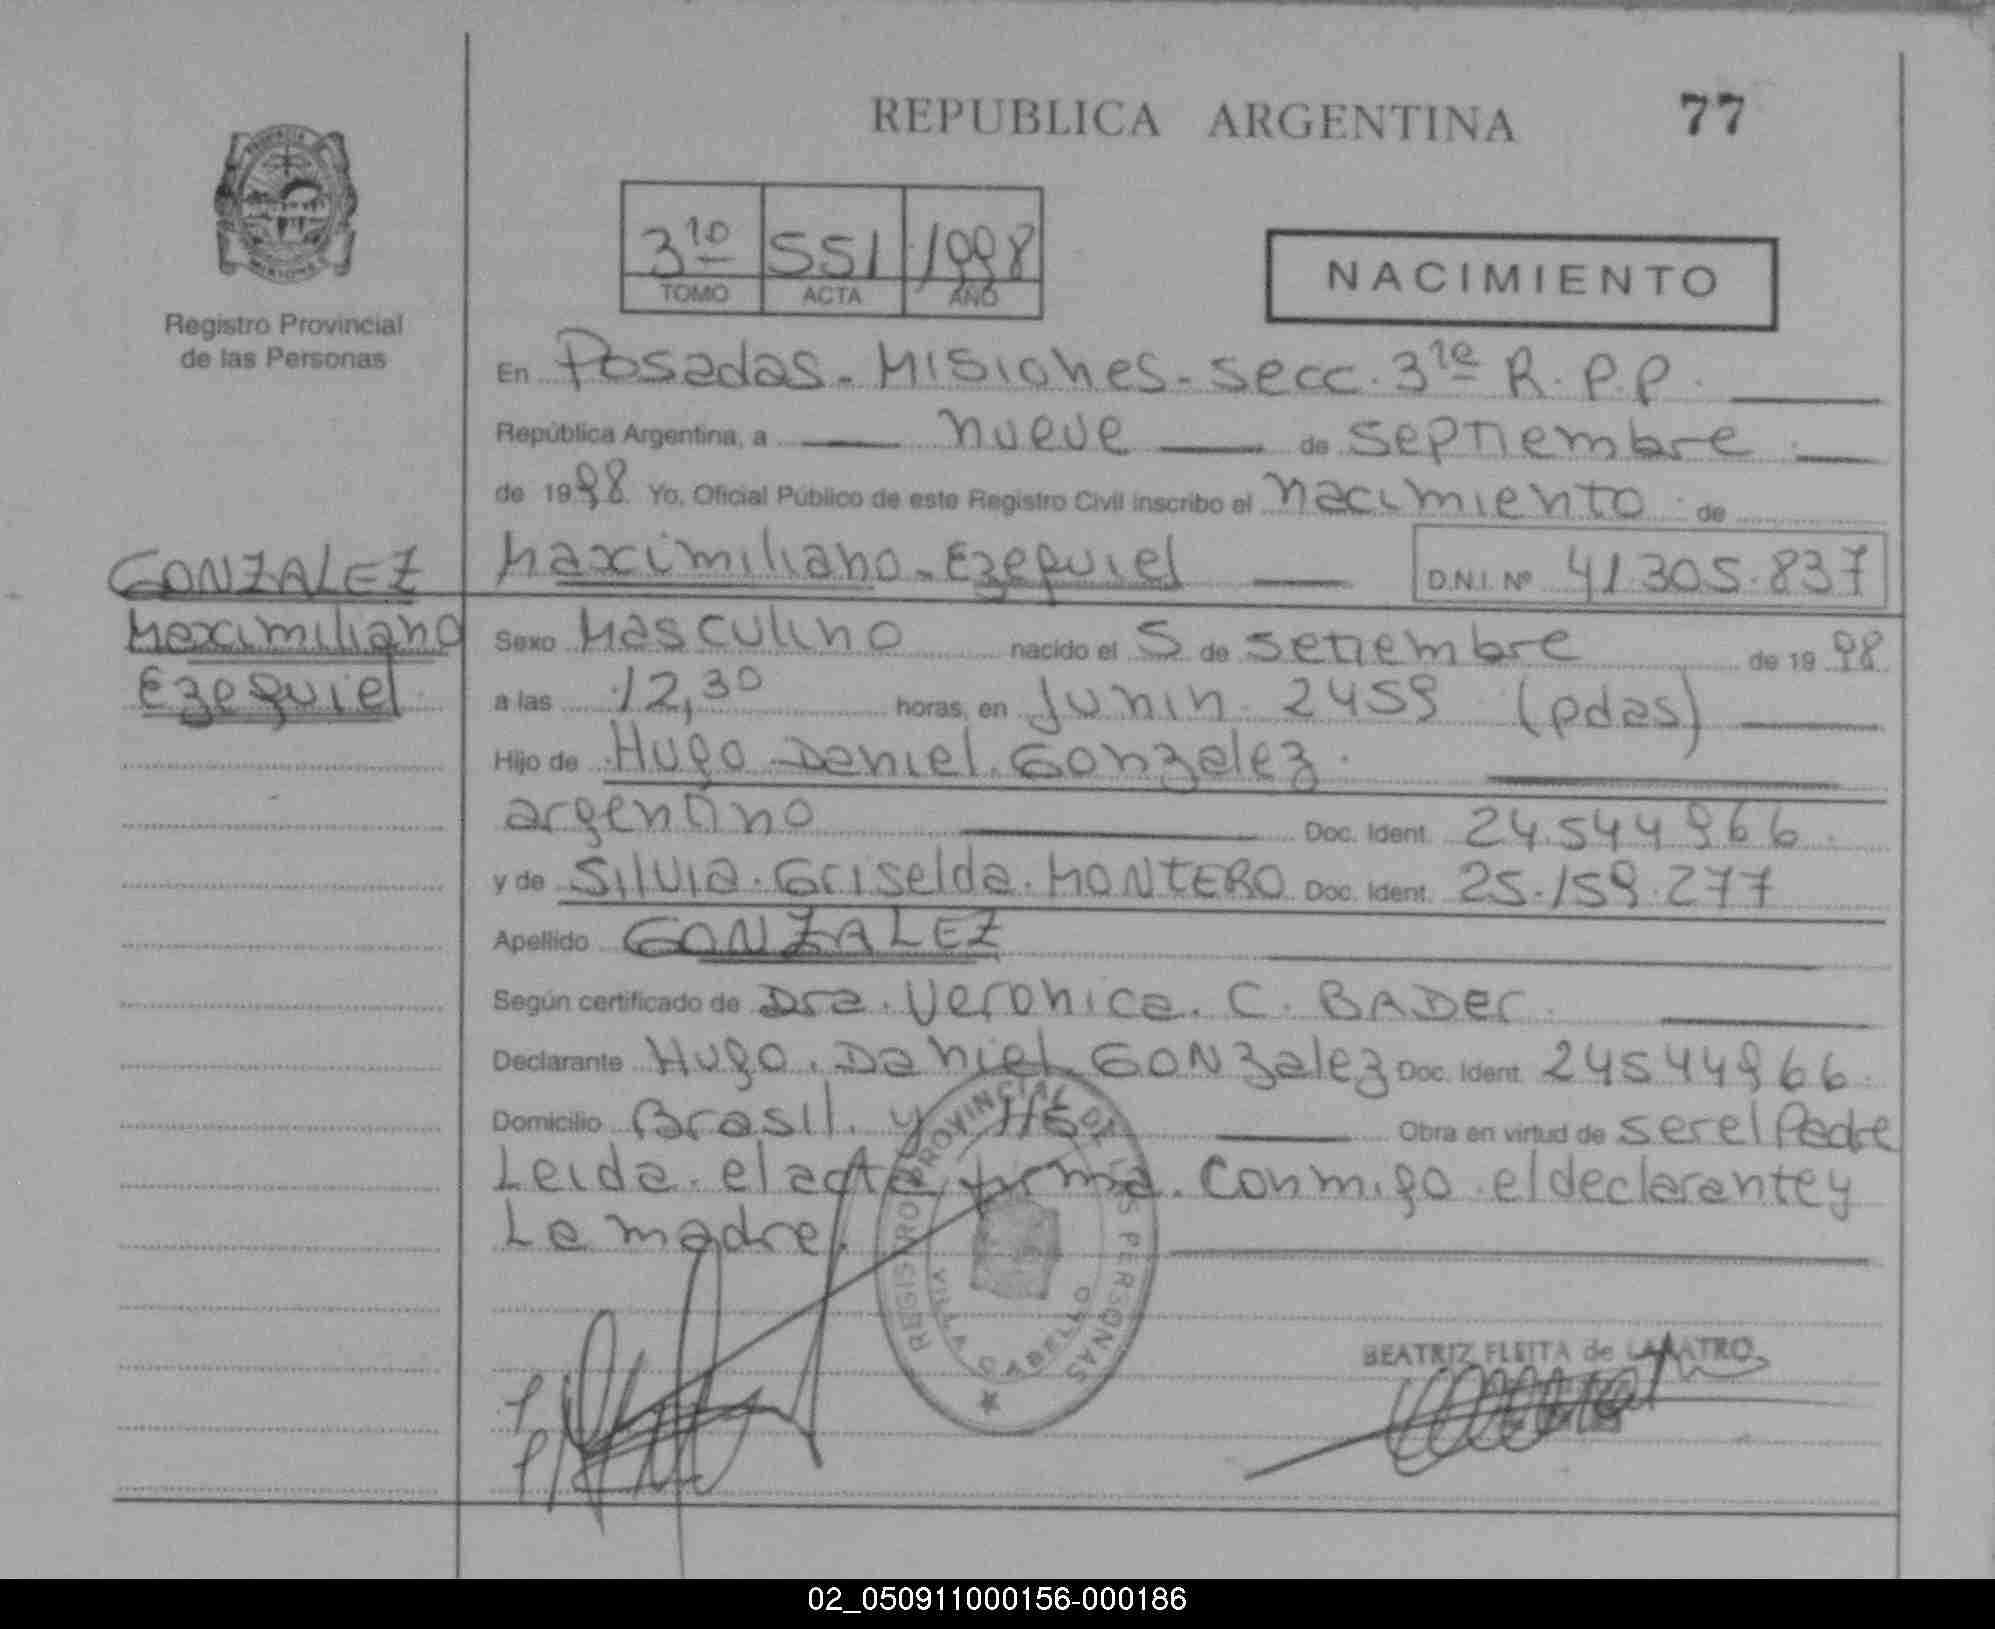 REPUBLICA ARGENTINA 77
Registro Provincial
de las Personas
3ro 551 1998
TOMO ACTA AÑO
NACIMIENTO
En Posadas - Misiones - secc. 3ra R.P.P.
República Argentina, a nueve de septiembre
de 1998 Yo, Oficial Público de este Registro Civil inscribo el nacimiento de
Maximiliano - Ezequiel D.N.I. Nº 41.305.837
GONZALEZ
Maximiliano
Ezequiel
Sexo Masculino nacido el 5 de setiembre de 1998
a las 12,30 horas, en Junin 2459 (pdas)
Hijo de Hugo Daniel Gonzalez
argentino Doc. Ident. 24.544.966
y de Silvia Griselda MONTERO Doc. Ident. 25.159.277
Apellido GONZALEZ
Según certificado de Dra. Veronica C. BADER
Declarante Hugo Daniel GONZalez Doc. Ident. 24544966
Domicilio Brasil y Obra en virtud de ser el Padre
Leida el acta firma conmigo el declarante y
La madre.
REGISTRO PROVINCIAL DE LAS PERSONAS
VILLA CABELLO
BEATRIZ FLEITA de
02_050911000156-000186